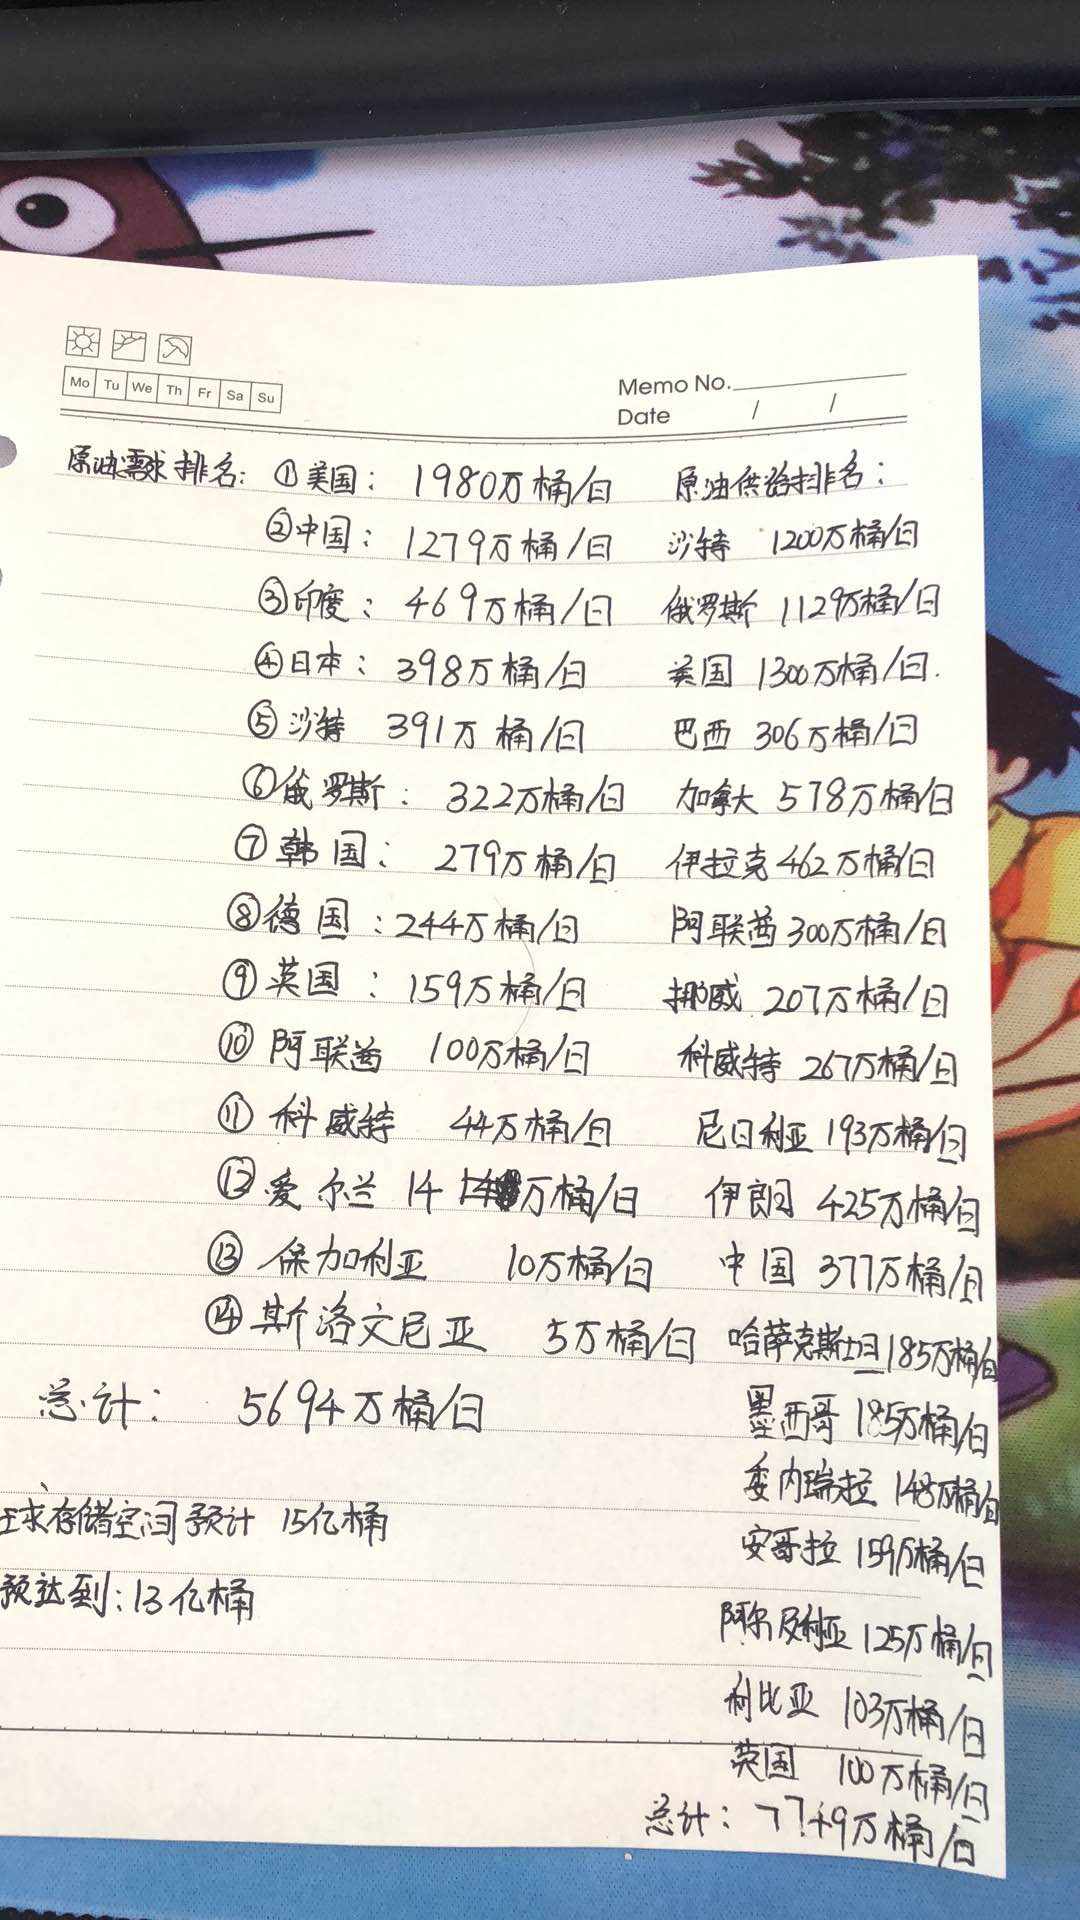 Mo Tu We Th Fr Sa Su
Memo No.
Date / /
原油需求排名: ①美国: 1980万桶/日
②中国: 1279万桶/日
③印度: 469万桶/日
④日本: 398万桶/日
⑤沙特 391万桶/日
⑥俄罗斯: 322万桶/日
⑦韩国: 279万桶/日
⑧德国: 244万桶/日
⑨英国: 159万桶/日
⑩阿联酋 100万桶/日
⑪科威特 44万桶/日
⑫爱尔兰 14万桶/日
⑬保加利亚 10万桶/日
⑭斯洛文尼亚 5万桶/日
总计: 5694万桶/日
球存储空间预计 15亿桶
预达到: 13亿桶
原油供给排名:
沙特 1200万桶/日
俄罗斯 1129万桶/日
美国 1300万桶/日.
巴西 306万桶/日
加拿大 578万桶/日
伊拉克 462万桶/日
阿联酋 300万桶/日
挪威 207万桶/日
科威特 267万桶/日
尼日利亚 193万桶/日
伊朗 425万桶/日
中国 377万桶/日
哈萨克斯坦 185万桶/日
墨西哥 185万桶/日
委内瑞拉 148万桶/日
安哥拉 159万桶/日
阿尔及利亚 125万桶/日
利比亚 103万桶/日
英国 100万桶/日
总计: 7749万桶/日